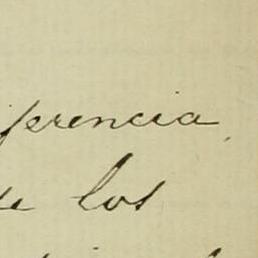 ferencia,
ue los